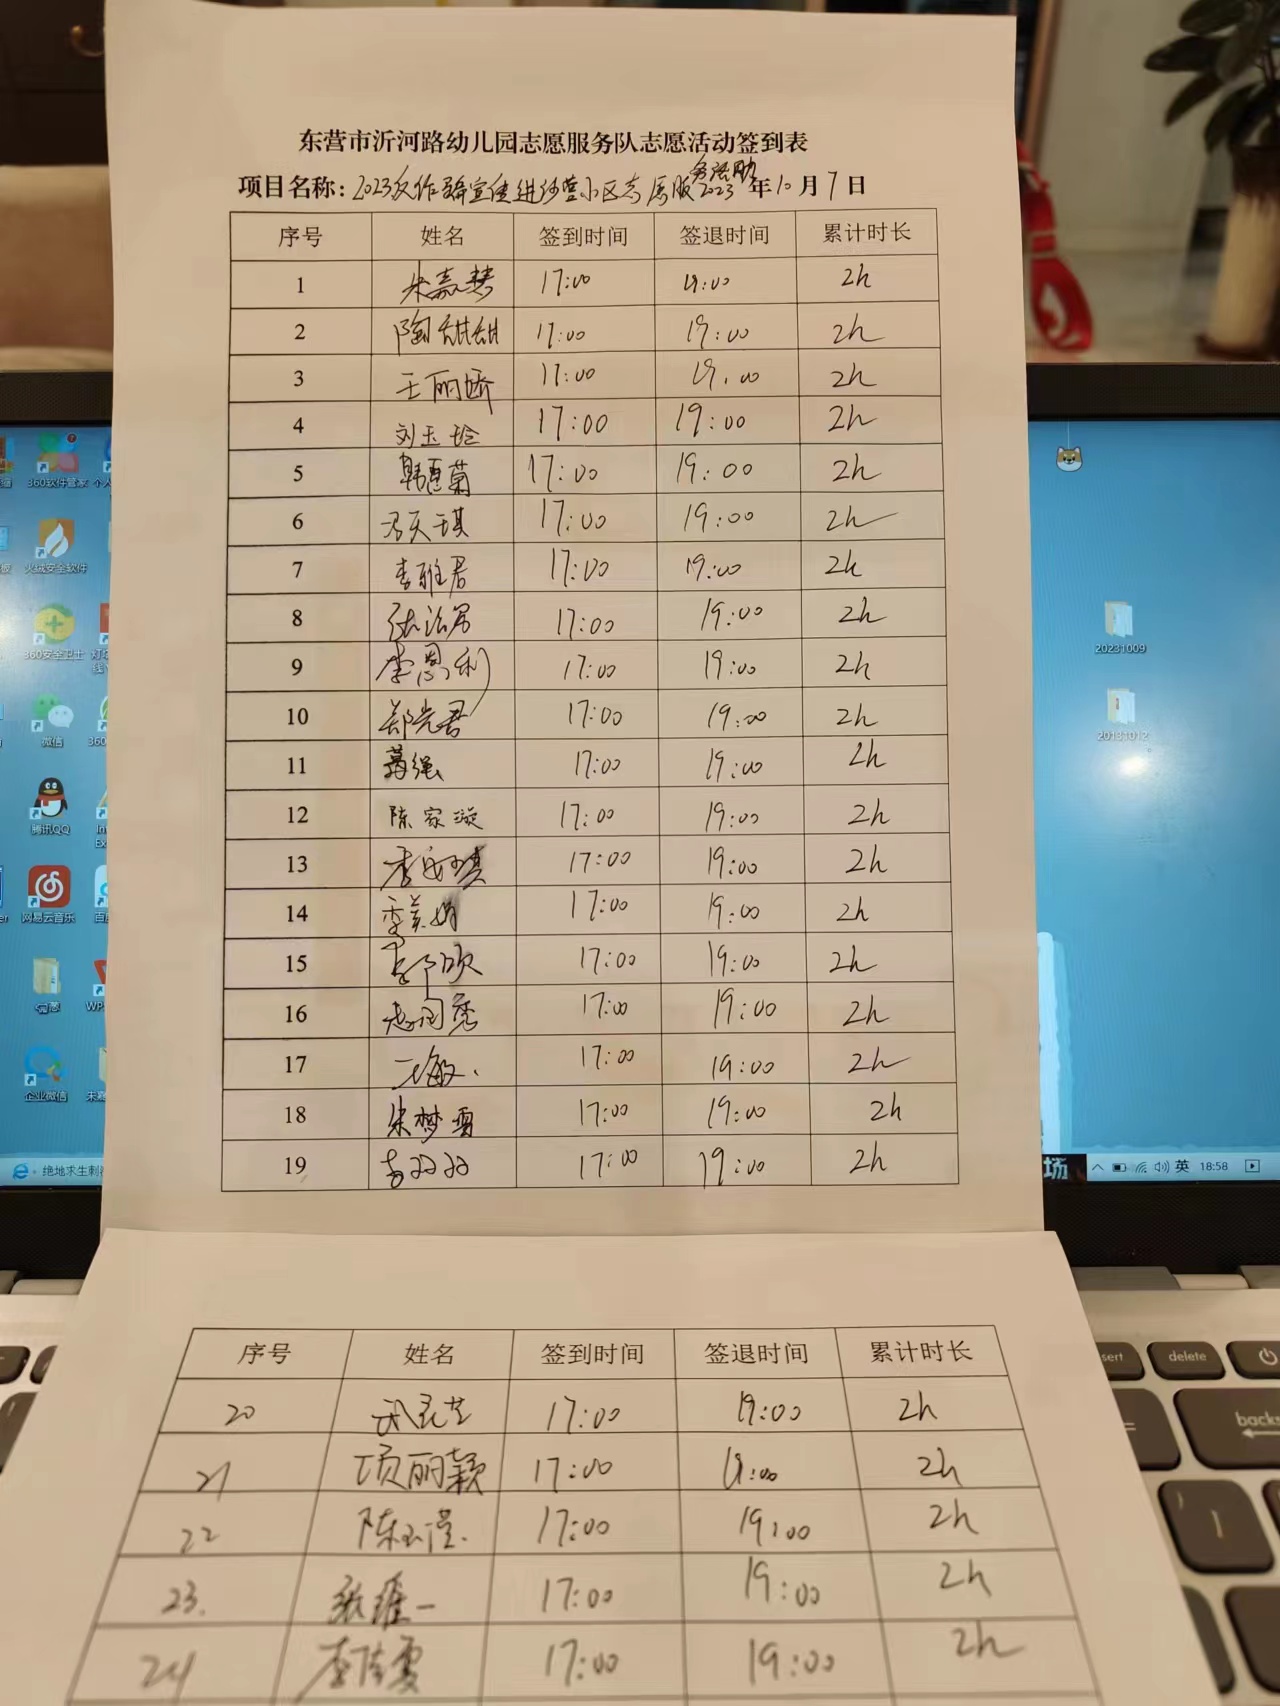 东营市沂河路幼儿园志愿服务队志愿活动签到表
务活动
项目名称：2023 宣传进 小区志愿服 2023年10月7日
序号 姓名 签到时间 签退时间 累计时长
1 朱嘉慧 17:00 19:00 2h
2 陶甜甜 17:00 19:00 2h
3 王丽娇 17:00 19:00 2h
4 刘玉玲 17:00 19:00 2h
5 韩惠菊 17:00 19:00 2h
6 天琪 17:00 19:00 2h
7 李雅君 17:00 19:00 2h
8 17:00 19:00 2h
9 李恩利 17:00 19:00 2h
10 郑光君 17:00 19:00 2h
11 葛强 17:00 19:00 2h
12 陈家漩 17:00 19:00 2h
13 17:00 19:00 2h
14 季美娟 17:00 19:00 2h
15 17:00 19:00 2h
16 17:00 19:00 2h
17 王敏 17:00 19:00 2h
18 朱梦雪 17:00 19:00 2h
19 17:00 19:00 2h
序号 姓名 签到时间 签退时间 累计时长
20 17:00 19:00 2h
21 项丽颖 17:00 19:00 2h
22 陈玉滢 17:00 19:00 2h
23. 张维一 17:00 19:00 2h
24 李佳雯 17:00 19:00 2h
360软件管家
火绒安全软件
360安全卫士
微信
腾讯QQ
网易云音乐
企业微信
绝地求生刺
20231009
20131012
场
英 18:58
delete
backs